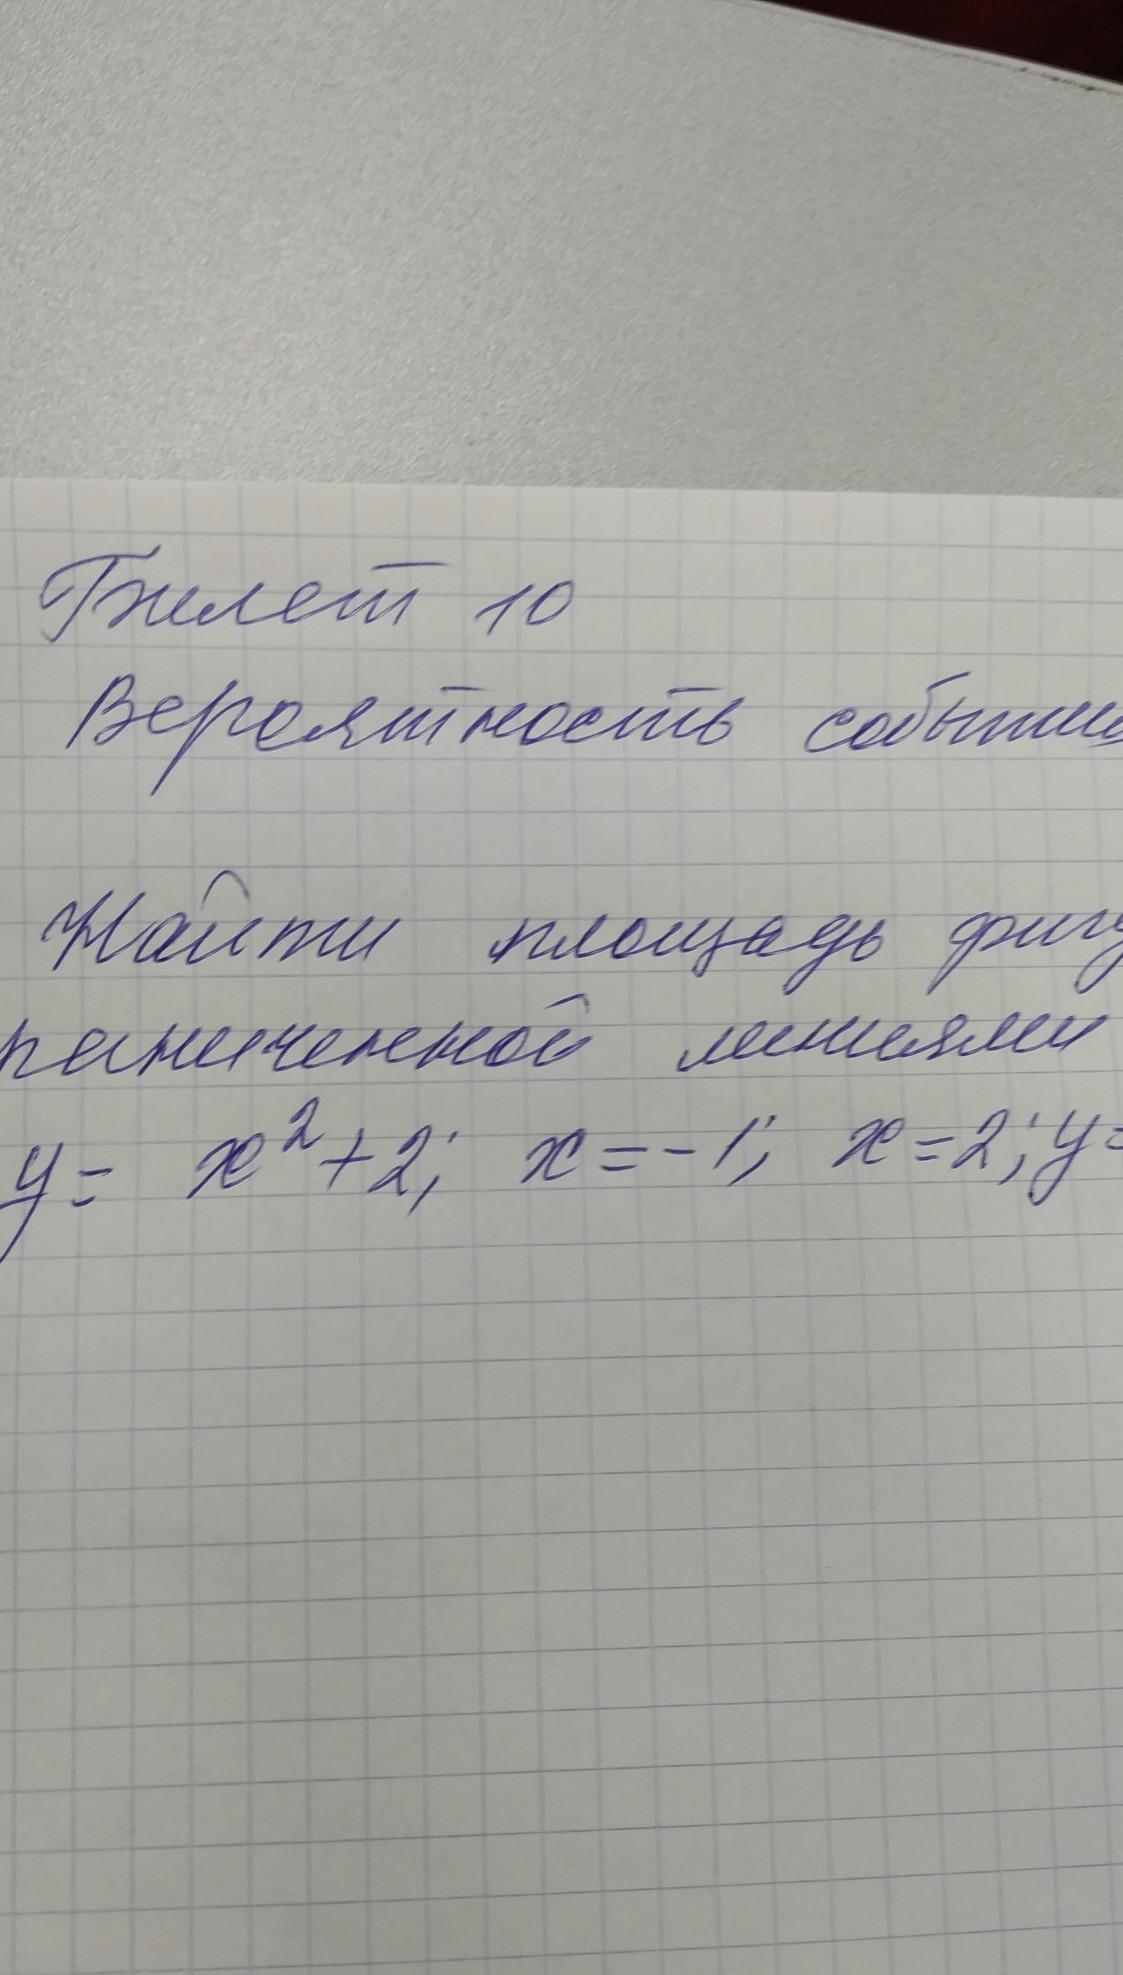 Билет 10
Вероятность событи
Найти площадь фигу
раниченной линиями
y= x²+2; x=-1; x=2; y=